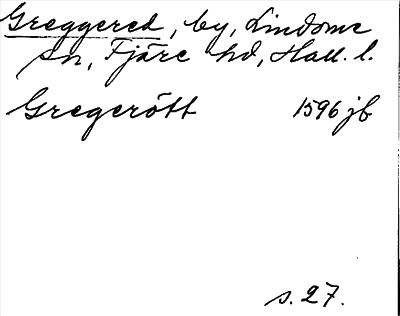 Greggered, by, Lindome
sn, Fjäre hd, Hall. l.
Gregerött 1596 jb
s. 27.